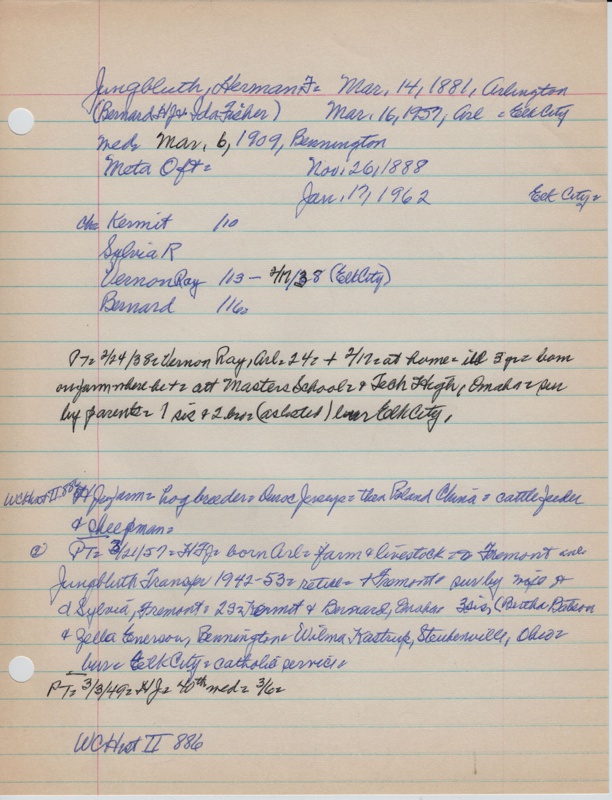 Jungbluth, Herman F= Mar. 14, 1881, Arlington
(Bernard H J + Ida Fisher) Mar. 16, 1957, Arl = Elk City
med= Mar. 6, 1909, Bennington
Meta Oft= Nov. 26, 1888
Jan. 17, 1962 Elk City=
ch= Kermit /10
Sylvia R
Vernon Ray /13 - 2/17/38 (Elk City)
Bernard /16=
PT= 2/24/38= Vernon Ray, Arl= 24= + 2/17= at home= ill 3 yr= born
on farm where he += att Masters School= + Tech High, Omaha= sur
by parents= 1 sis + 2 bro= (as listed) bur Elk City.
WCHist II 886 H J= farm= hog breeder= Duroc Jerseys= then Poland China= cattle feeder
& sheepman=
PT= 3/21/57= H F J= born Arl= farm & livestock = Fremont
Jungbluth Transfer 1942-53= retire= + Fremont= sur by wife +
d Sylvia, Fremont= 2s= Kermit & Bernard, Omaha= 3 sis, (Bertha
& Zella Enerson, Bennington= Wilma Kastrup, Steubenville, Ohio=
bur= Elk City= catholic service=
PT= 3/3/49= H J= 40th med= 3/6=
WCHist II 886